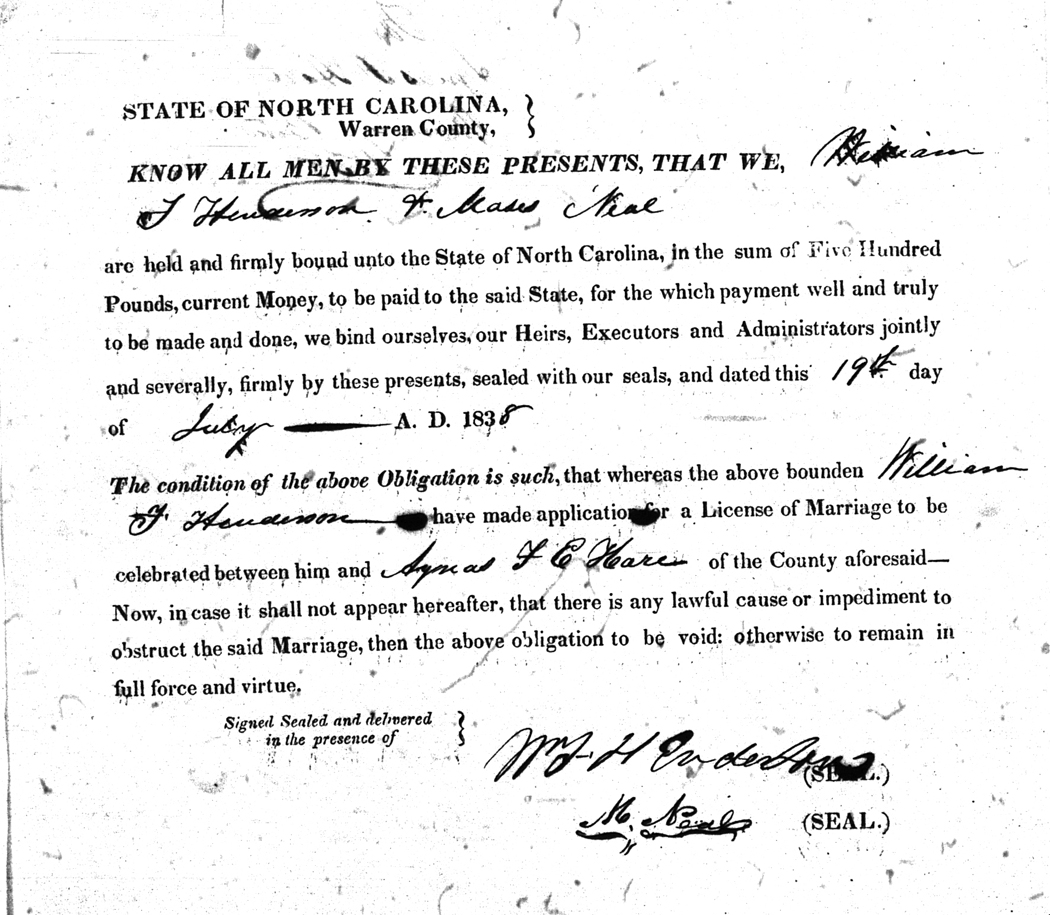 STATE OF NORTH CAROLINA,
Warren County,
KNOW ALL MEN BY THESE PRESENTS, THAT WE, William
F Henderson & Moses Neal
are held and firmly bound unto the State of North Carolina, in the sum of Five Hundred
Pounds, current Money, to be paid to the said State, for the which payment well and truly
to be made and done, we bind ourselves, our Heirs, Executors and Administrators jointly
and severally, firmly by these presents, sealed with our seals, and dated this 19th day
of July A. D. 1838
The condition of the above Obligation is such, that whereas the above bounden William
F. Henderson have made application for a License of Marriage to be
celebrated between him and F E Hare of the County aforesaid—
Now, in case it shall not appear hereafter, that there is any lawful cause or impediment to
obstruct the said Marriage, then the above obligation to be void: otherwise to remain in
full force and virtue.
Signed Sealed and delivered
in the presence of
Wm F Henderson (SEAL.)
M. Neal (SEAL.)